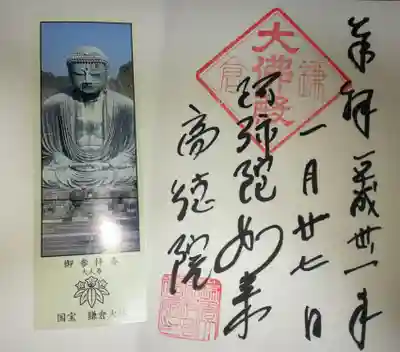 奉拝 平成卅一年
一月廿七日
大佛殿
鎌倉
阿弥陀如来
高徳院
御参拝券
大人券
国宝 鎌倉大